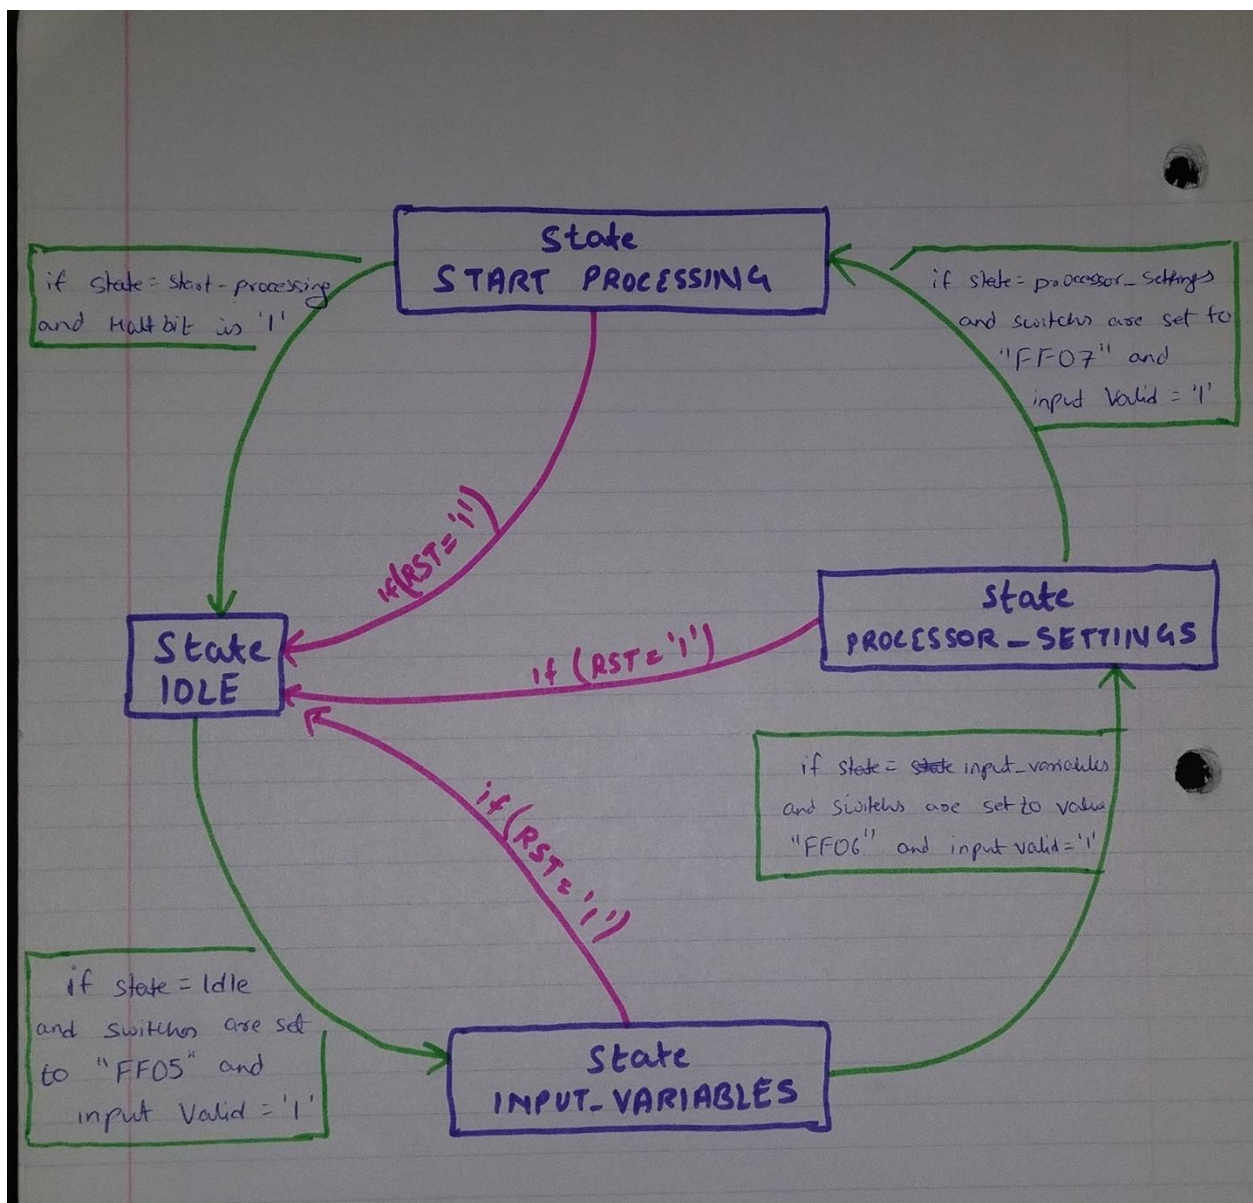 State
START PROCESSING
if state = start-processing
and Halt bit is '1'
if state = processor_settings
and switchs are set to
"FF07" and
input Valid = '1'
if(RST='1')
State
IDLE
if (RST='1')
State
PROCESSOR_SETTINGS
if (RST='1')
if state = state input_variables
and switchs are set to value
"FF06" and input valid='1'
if state = Idle
and switches are set
to "FF05" and
input Valid = '1'
State
INPUT_VARIABLES